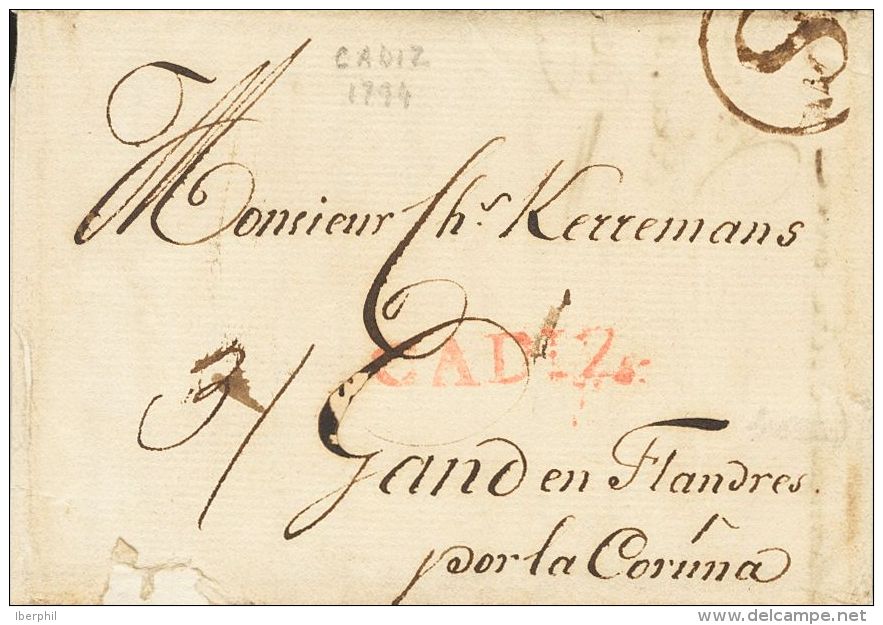 CADIZ
1794
S
Monsieur Ch.s Kerremans
CADIZ
Gand en Flandres.
por la Coruña
Iberphil
www.delcampe.net